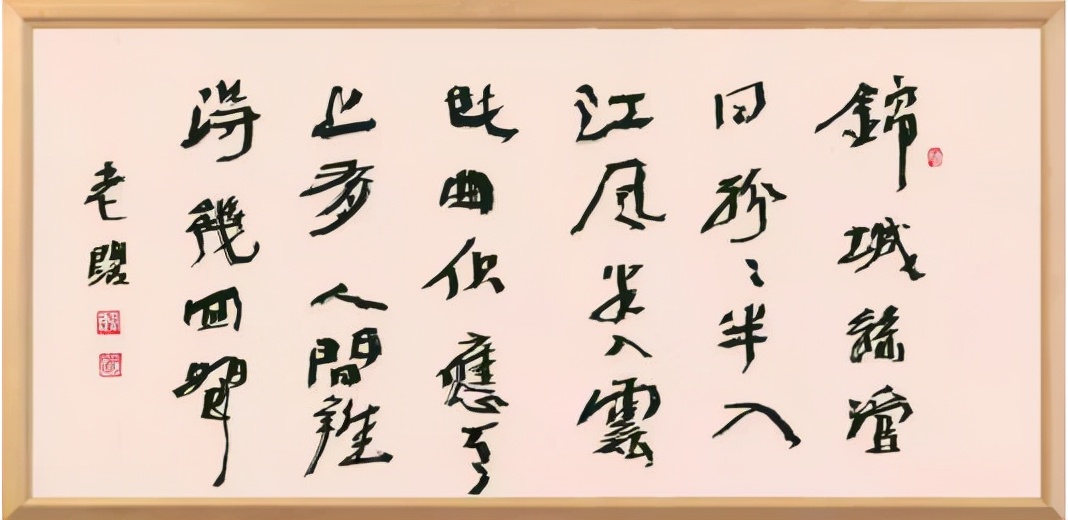 錦城絲管
日紛〻半入
江風半入雲
此曲只應天
上有人間難
得幾回聞
老